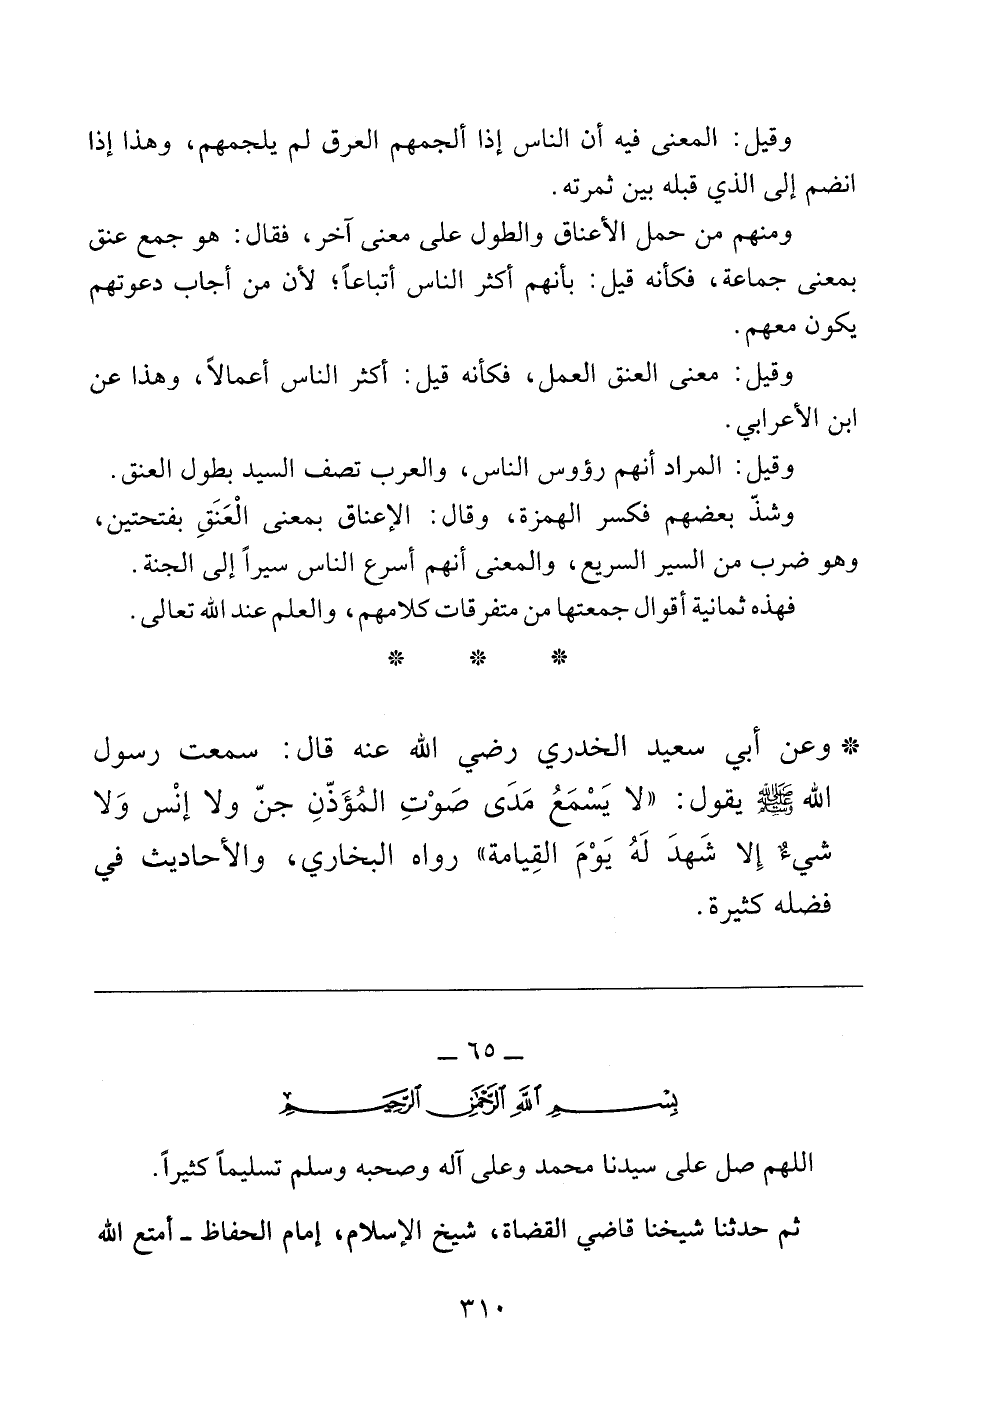 وقيل: المعنى فيه أن الناس إذا ألجمهم العرق لم يلجمهم، وهذا إذا
انضم إلى الذي قبله بين ثمرته.
ومنهم من حمل الأعناق والطول على معنى آخر، فقال: هو جمع عنق
بمعنى جماعة، فكأنه قيل: بأنهم أكثر الناس أتباعاً؛ لأن من أجاب دعوتهم
يكون معهم.
وقيل: معنى العنق العمل، فكأنه قيل: أكثر الناس أعمالاً، وهذا عن
ابن الأعرابي.
وقيل: المراد أنهم رؤوس الناس، والعرب تصف السيد بطول العنق.
وشذّ بعضهم فكسر الهمزة، وقال: الإعناق بمعنى الْعَنَقِ بفتحتين،
وهو ضرب من السير السريع، والمعنى أنهم أسرع الناس سيراً إلى الجنة.
فهذه ثمانية أقوال جمعتها من متفرقات كلامهم، والعلم عند الله تعالى.
* * *
* وعن أبي سعيد الخدري رضي الله عنه قال: سمعت رسول
الله ﷺ يقول: «لا يَسْمَعُ مَدَى صَوْتِ المُؤَذّنِ جنّ ولا إنْس وَلا
شيءٌ إلا شَهدَ لَهُ يَوْمَ القِيامة» رواه البخاري، والأحاديث في
فضله كثيرة.
ـ ٦٥ ـ
بِسْمِ اللَّهِ الرَّحْمَٰنِ الرَّحِيمِ
اللهم صل على سيدنا محمد وعلى آله وصحبه وسلم تسليماً كثيراً.
ثم حدثنا شيخنا قاضي القضاة، شيخ الإسلام، إمام الحفاظ ـ أمتع الله
٣١٠